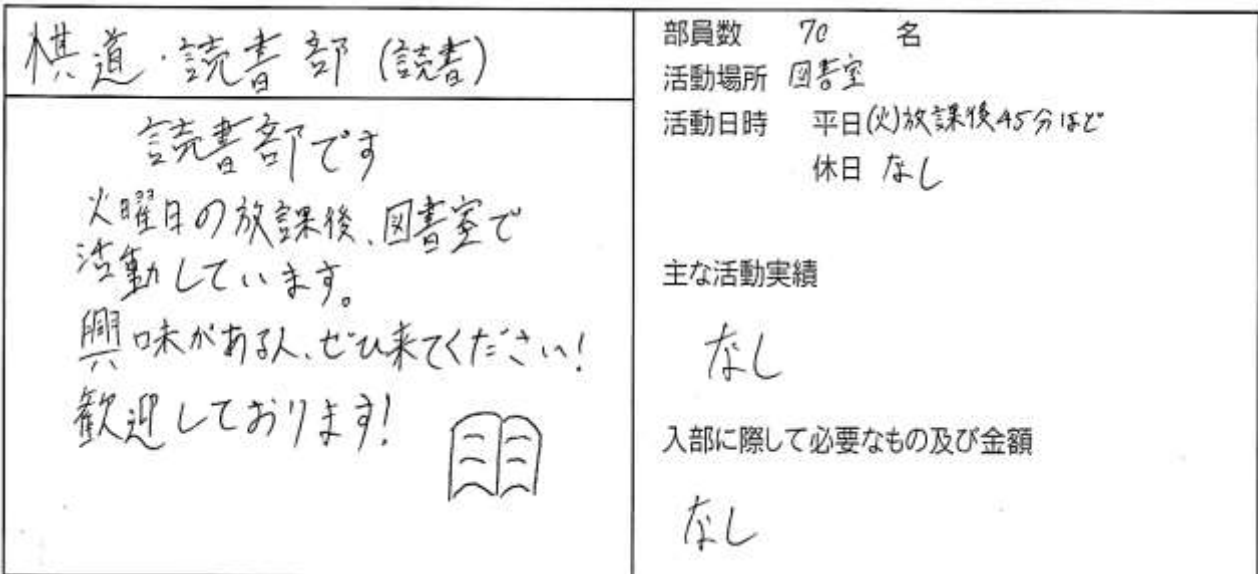 棋道・読書部(読書)
読書部です
火曜日の放課後、図書室で
活動しています。
興味がある人、ぜひ来てください!
歓迎しております!
部員数 70 名
活動場所 図書室
活動日時 平日(火)放課後45分ほど
休日 なし
主な活動実績
なし
入部に際して必要なもの及び金額
なし